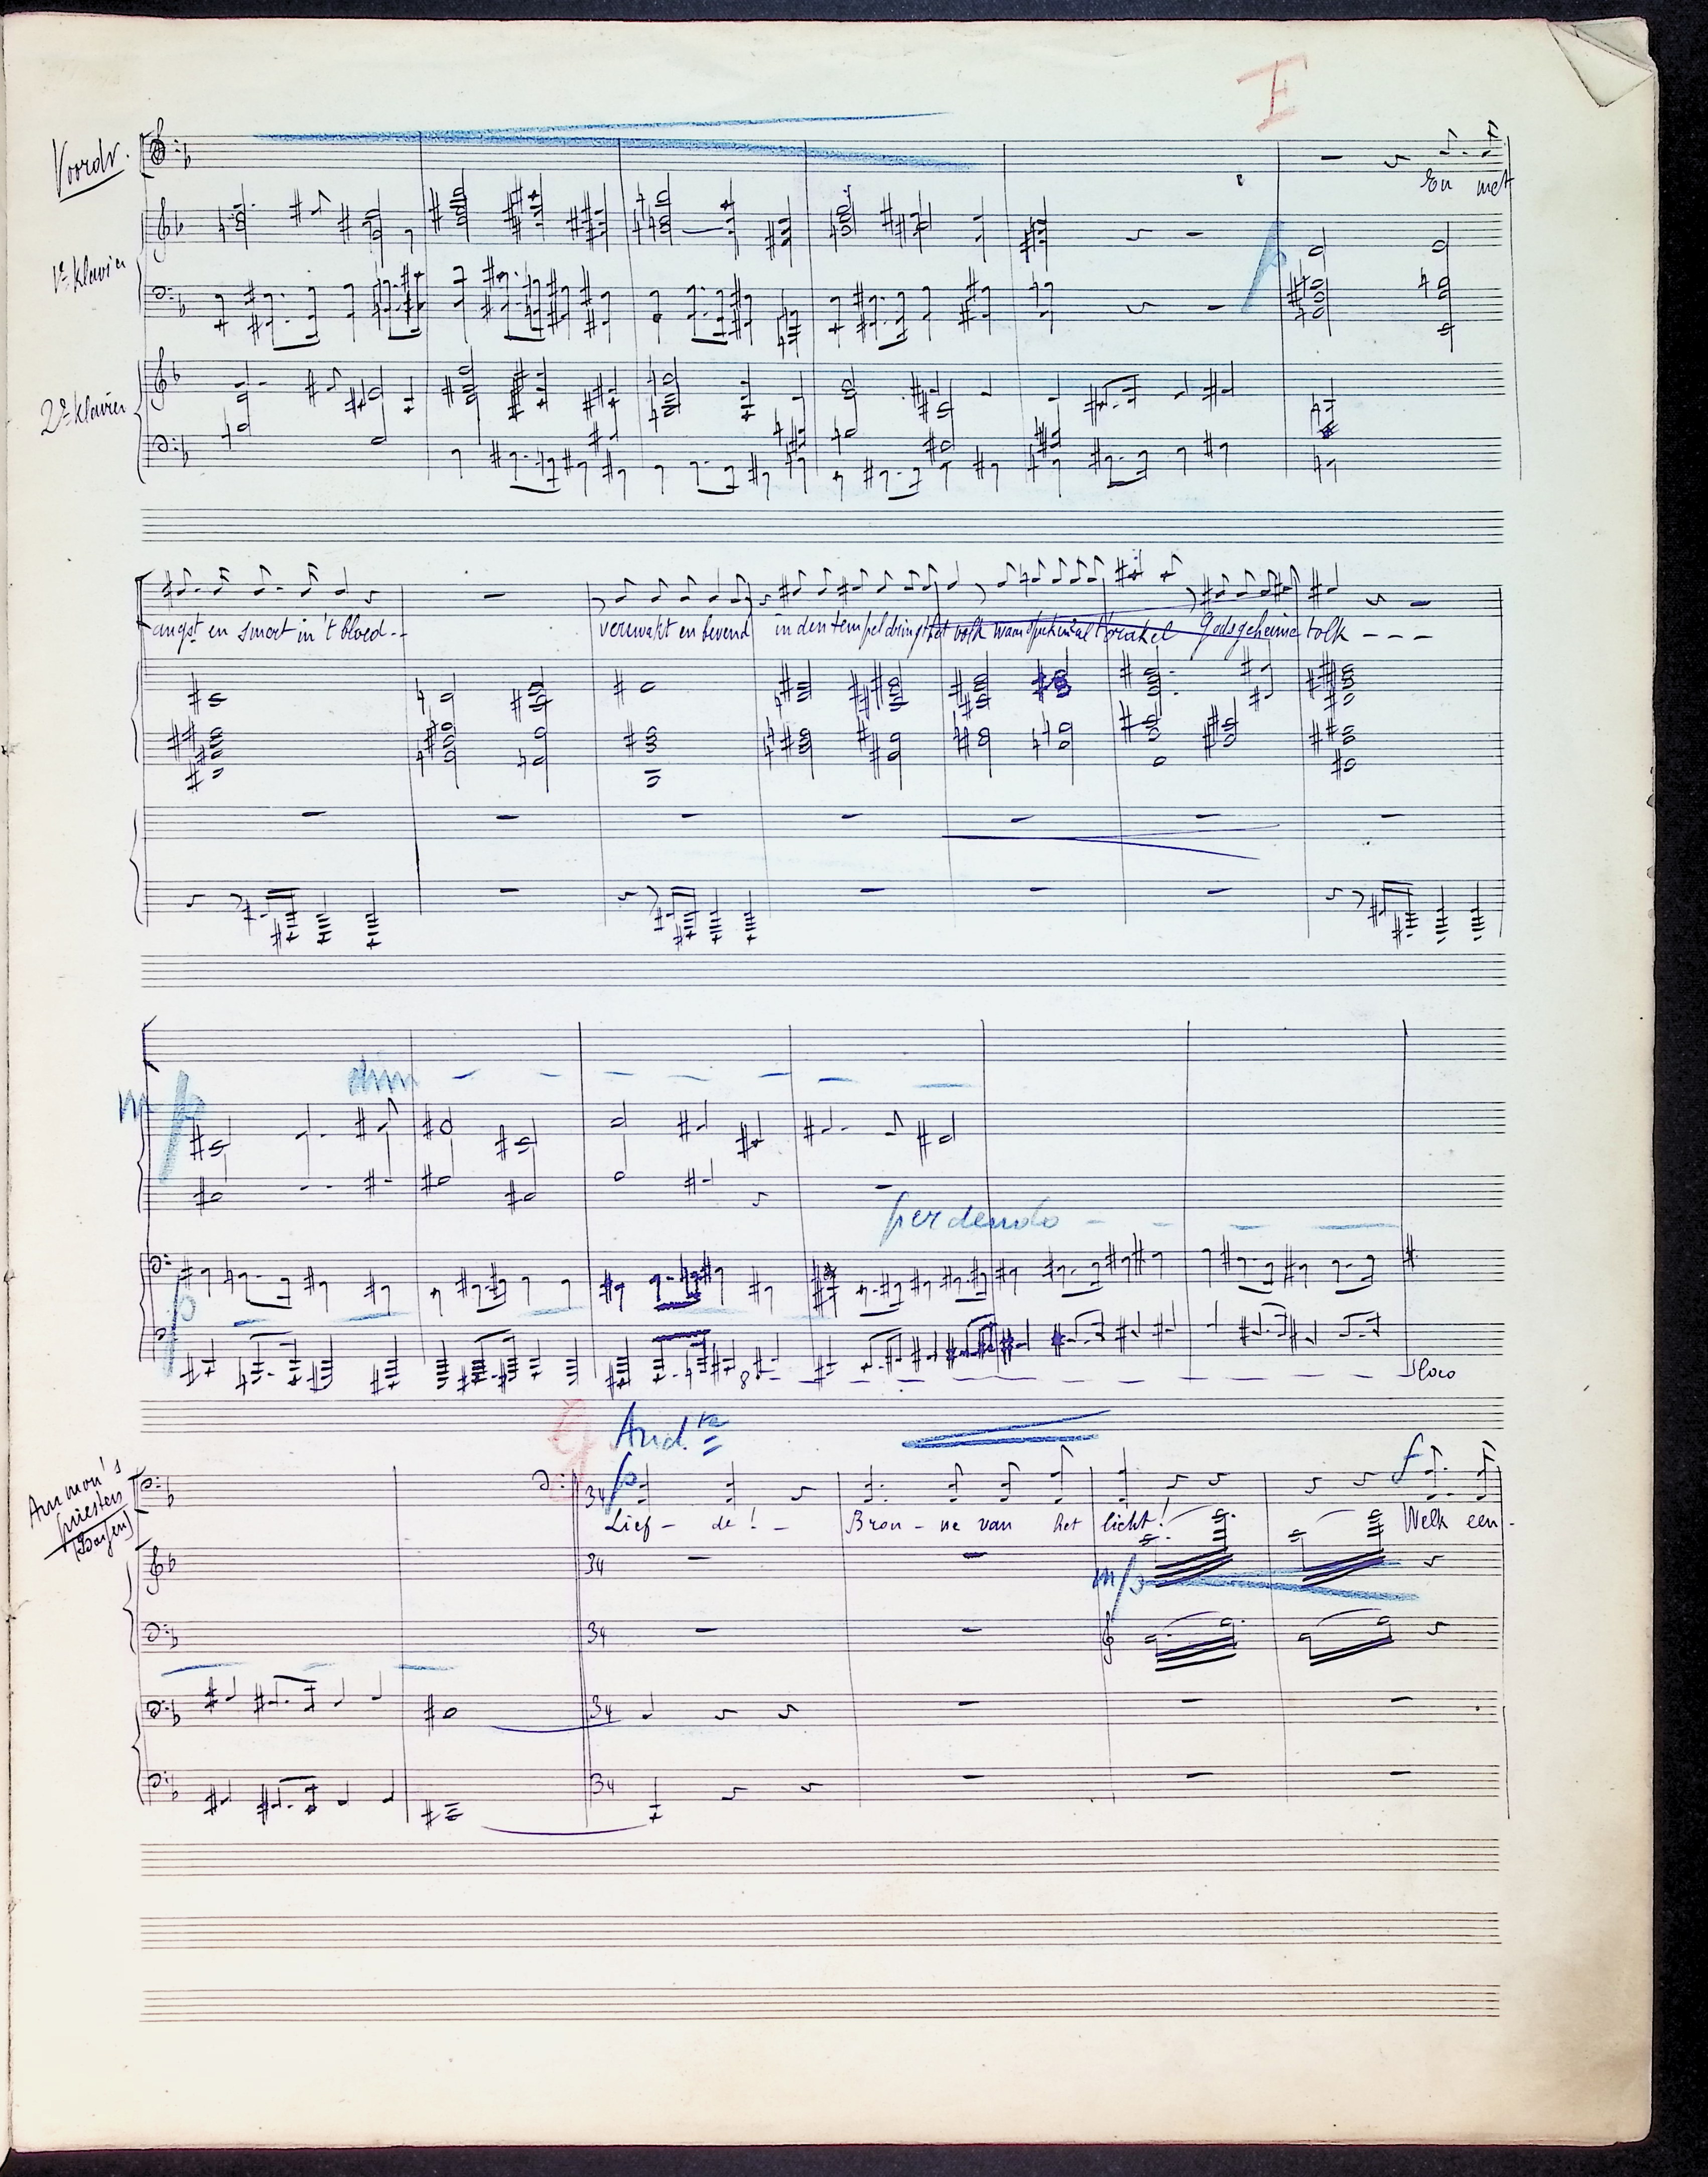 F
Voordr.
En met
1e Klavier
p
2e Klavier
angst en smart in 't bloed --
verewakt en bevend in den tempel dringt het volk waar
orakel Gods geheime tolk - - -
mp dim
perdendo
p
8
loco
G And.te
Ammon's priesters
3 4 p f
Lief - de! - Bron - ne van het licht! Welk een -
3 4 mp
3 4
3 4
3 4